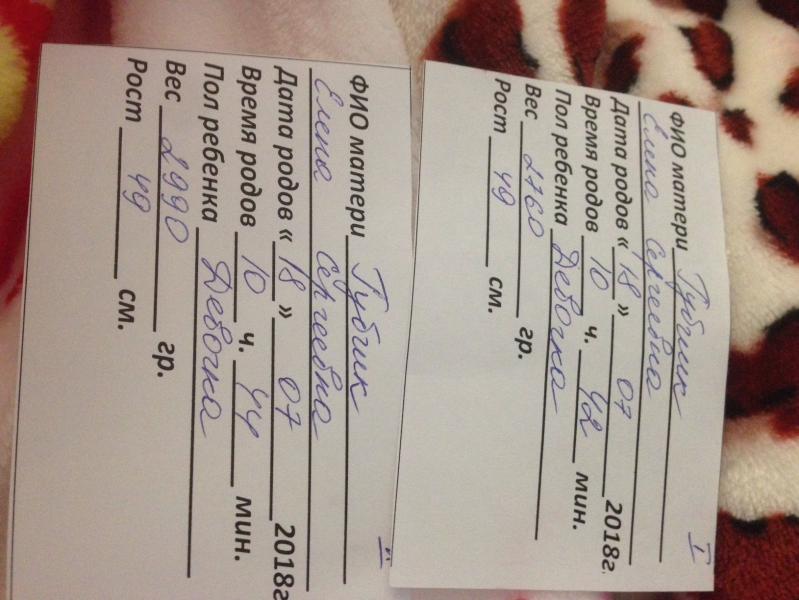 I
ФИО матери Губчик
Елена Сергеевна
Дата родов « 18 » 07 2018г.
Время родов 10 ч. 42 мин.
Пол ребенка Девочка
Вес 2760 гр.
Рост 49 см.
II
ФИО матери Губчик
Елена Сергеевна
Дата родов « 18 » 07 2018г
Время родов 10 ч. 44 мин.
Пол ребенка Девочка
Вес 2990 гр.
Рост 49 см.